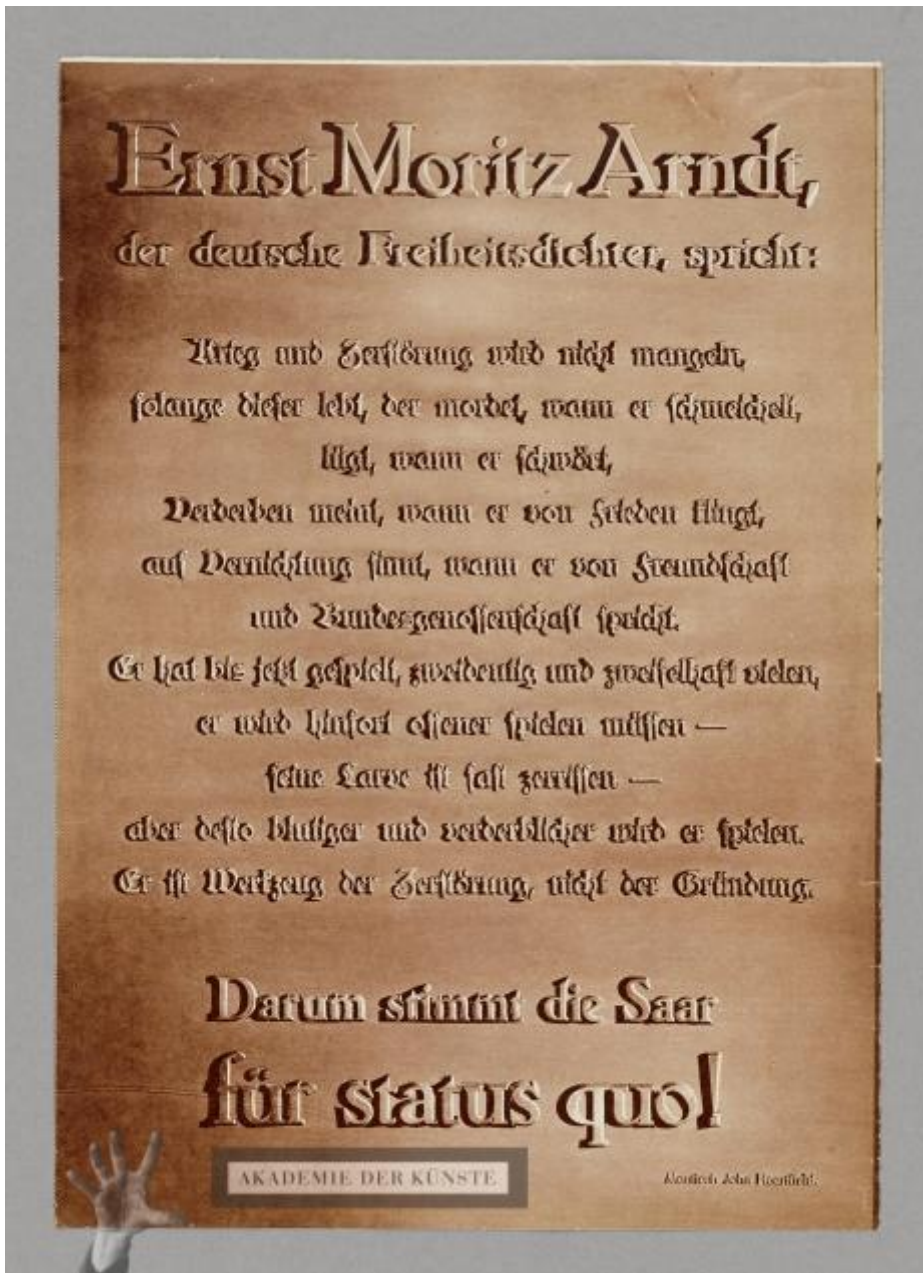 Ernst Moritz Arndt,
der deutsche Freiheitsdichter, spricht:
Krieg und Zerstörung wird nicht mangeln,
solange dieser lebt, der mordet, wann er schmeichelt,
lügt, wann er schwört,
Verderben meint, wann er von Frieden klingt,
auf Vernichtung sinnt, wann er von Freundschaft
und Bundesgenossenschaft spricht.
Er hat bis jetzt gespielt, zweideutig und zweifelhaft vielen,
er wird hinfort offener spielen müssen —
seine Larve ist fast zerrissen —
aber desto blutiger und verderblicher wird er spielen.
Er ist Werkzeug der Zerstörung, nicht der Gründung.
Darum stimmt die Saar
für status quo!
AKADEMIE DER KÜNSTE
John Heartfield.